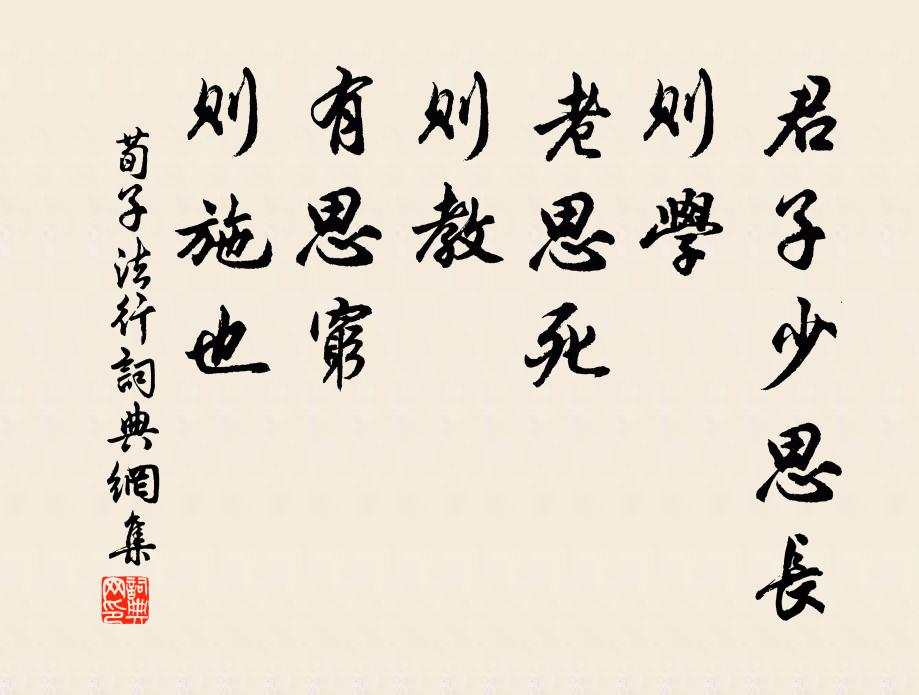 君子少思長
則學
老思死
則教
有思窮
則施也
荀子法行詞典網集
詞典網印